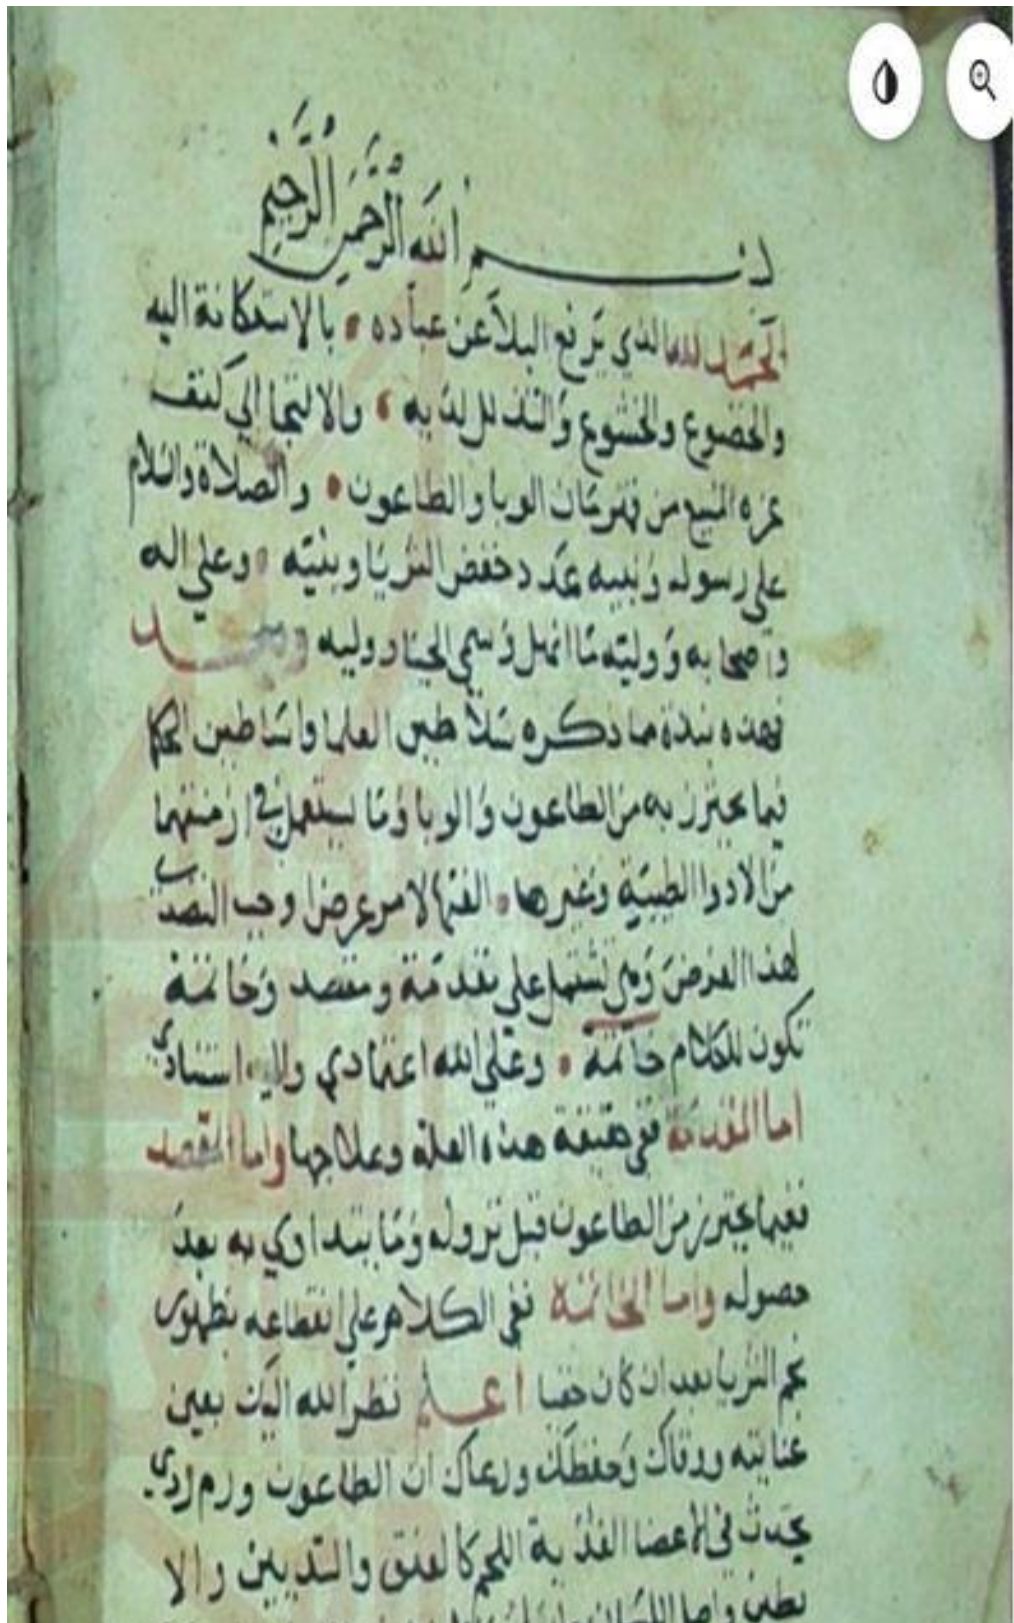 بسم الله الرحمن الرحيم
الحمد لله الذي يرفع البلا عن عباده بالاستكانة اليه
والخضوع والخشوع والتذلل لديه والالتجا الي كنف
عزه المنيع من قهرمان الوبا والطاعون والصلاة والسلام
علي رسوله ونبيه عدد خفض الثريا وعلي اله
واصحابه ووليه ما انهل وسمي وليه وبعد
فهذه نبذة مما ذكره سلاطين العلما واساطين الحكما
فيما يحترز به من الطاعون والوبا وما يستعمل في ازمنتهما
من الادوا الطيبة وغيرها الفتها لامر عرض اوجب التصدي
لهذا الغرض وهي تشتمل علي مقدمة ومقصد وخاتمة
تكون للكلام خاتمة وعلي الله اعتمادي واليه استنادي
اما المقدمة ففي حقيقة هذه العلة وعلاجها واما المقصد
ففيما يحترز من الطاعون قبل نزوله وما يتداوي به بعد
حصوله واما الخاتمة ففي الكلام علي انقطاعه بظهور
نجم الثريا بعد ان كان خفيا اعلم نظر الله اليك بعين
عنايته ووقاك وحفظك ورعاك ان الطاعون ورم ردي
يحدث في الاعضا الغددية اللحم كالعنق والثديين والا
بطين واصل اللسان